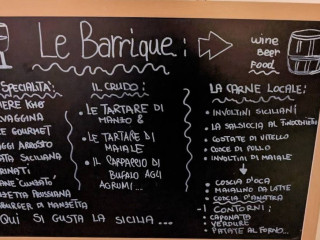 Le Barrique:
wine
Beer
Food
SPECIALITA':
SELVAGGINA
GOURMET
ARROSTO
SICILIANA
PANTESCA
BURGER DI MANZETTA
IL CRUDO:
• LE TARTARE DI
MANZO &
• LE TARTARE DI
MAIALE
• IL CARPACCIO DI
BUFALO AGLI
AGRUMI...
LA CARNE LOCALE:
• INVOLTINI SICILIANI
• LA SALSICCIA AL FINOCCHIETTO
• COSTATE DI VITELLO
• COSCE DI POLLO
• INVOLTINI DI MAIALE
• COSCIA D'OCA
• MAIALINO DA LATTE
• COSCIA D'ANATRA
- I CONTORNI:
• CAPONATA
• VERDURE
• PATATE AL FORNO...
QUI SI GUSTA LA SICILIA...